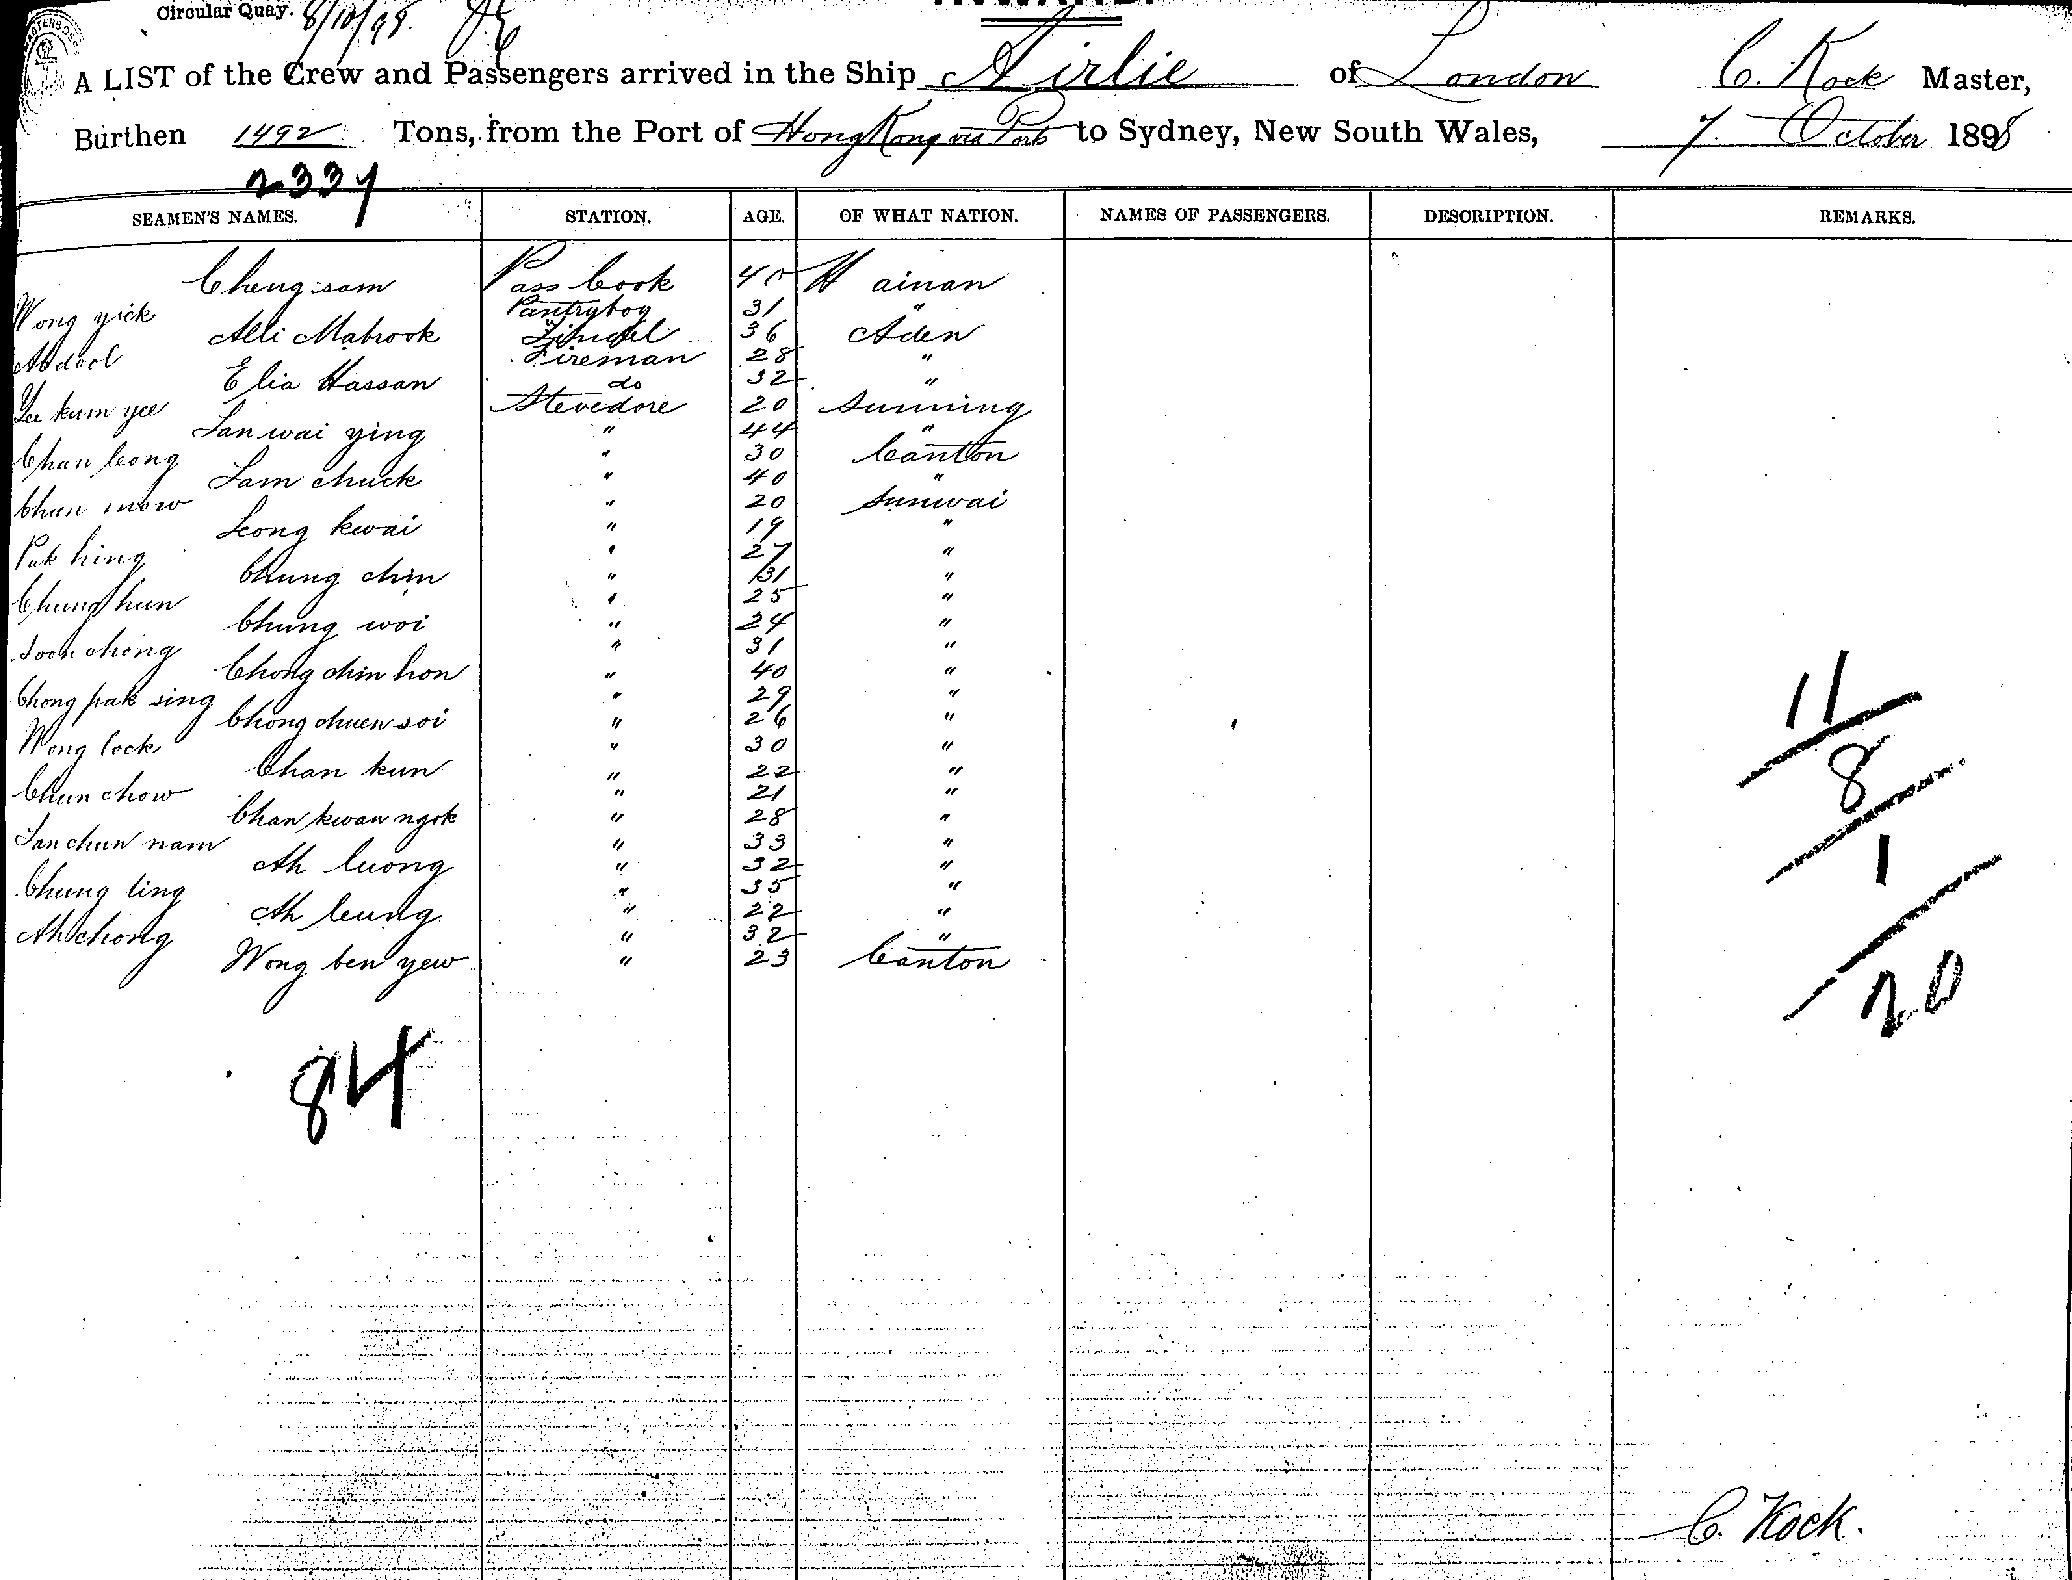 Circular Quay. 8/10/98.
A LIST of the Crew and Passengers arrived in the Ship Airlie of London C. Kock Master,
Burthen 1492 Tons, from the Port of Hong Kong via Ports to Sydney, New South Wales, 7. October 1898
2337
SEAMEN'S NAMES. STATION. AGE. OF WHAT NATION. NAMES OF PASSENGERS. DESCRIPTION. REMARKS.
Cheng sam Pass Cook 40 Hainan
Wong yick Pantryboy 31 "
Alli Mabrook 36 Aden
Abdool Fireman 28 "
Elia Hassan do 32 "
Lee kum yee Stevedore 20 Sunning
San wai ying " 44 "
Chan leong " 30 Canton
Lam chuck " 40 "
Chun mow " 20 Sunwai
Leong kwai " 19 "
Pak hing " 27 "
Chung chin " 31 "
Chung hun " 25 "
Chung woi " 24 "
Soon cheng " 31 "
Chong chin hon " 40 "
Chong pak sing " 29 "
Chong chuen soi " 26 "
Wong lock " 30 "
Chan kun " 22 "
Chun chow " 21 "
Chan kwan ngok " 28 "
San chun nam " 33 "
Ah luong " 32 "
Chung ling " 35 "
Ah leung " 22 "
Ah chong " 32 "
Wong ben yew " 23 Canton
11
8
1
20
84
C. Kock.